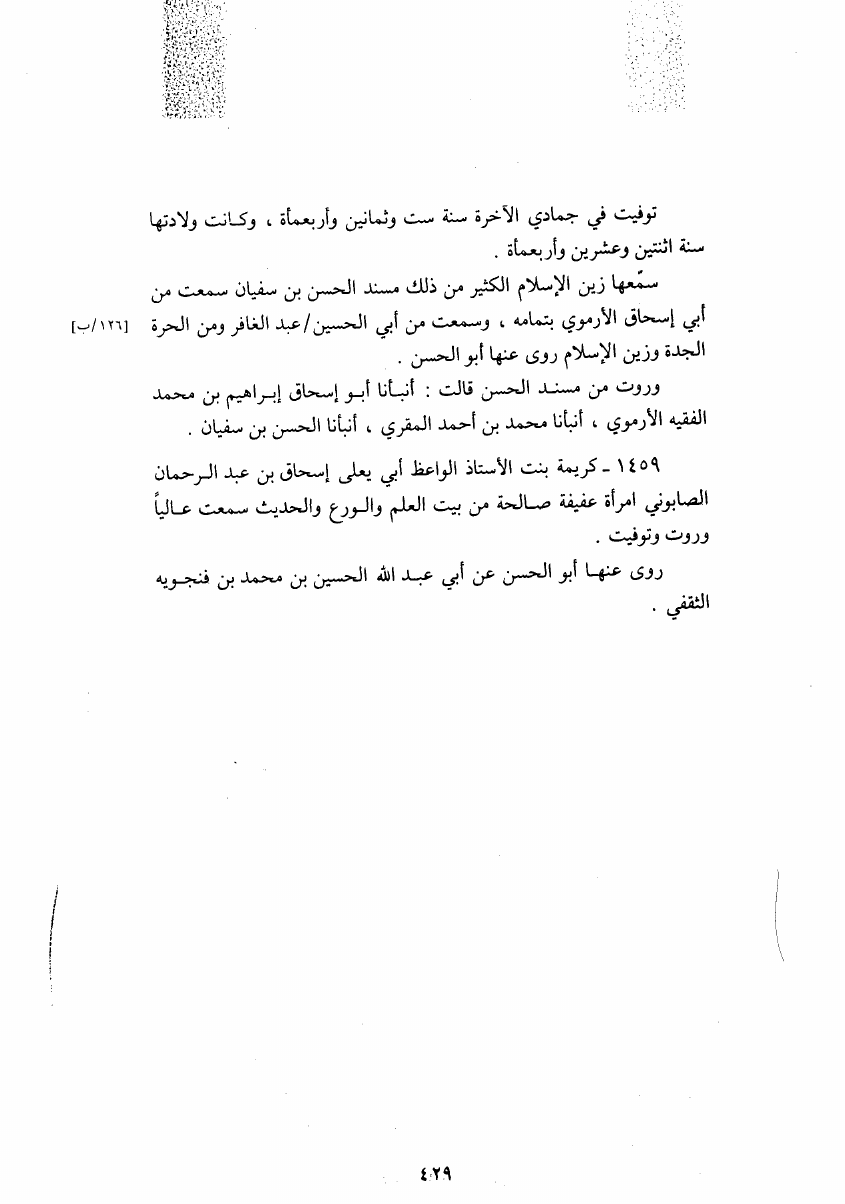 توفيت في جمادي الآخرة سنة ست وثمانين وأربعمأة ، وكانت ولادتها
سنة اثنتين وعشرين وأربعمأة .
سمّعها زين الإسلام الكثير من ذلك مسند الحسن بن سفيان سمعت من
أبي إسحاق الأرموي بتمامه ، وسمعت من أبي الحسين/عبد الغافر ومن الحرة [١٢٦/ب]
الجدة وزين الإسلام روى عنها أبو الحسن .
وروت من مسند الحسن قالت : أنبأنا أبو إسحاق إبراهيم بن محمد
الفقيه الأرموي ، أنبأنا محمد بن أحمد المقري ، أنبأنا الحسن بن سفيان .
١٤٥٩ - كريمة بنت الأستاذ الواعظ أبي يعلى إسحاق بن عبد الرحمان
الصابوني امرأة عفيفة صالحة من بيت العلم والورع والحديث سمعت عالياً
وروت وتوفيت .
روى عنها أبو الحسن عن أبي عبد الله الحسين بن محمد بن فنجويه
الثقفي .
٤٢٩